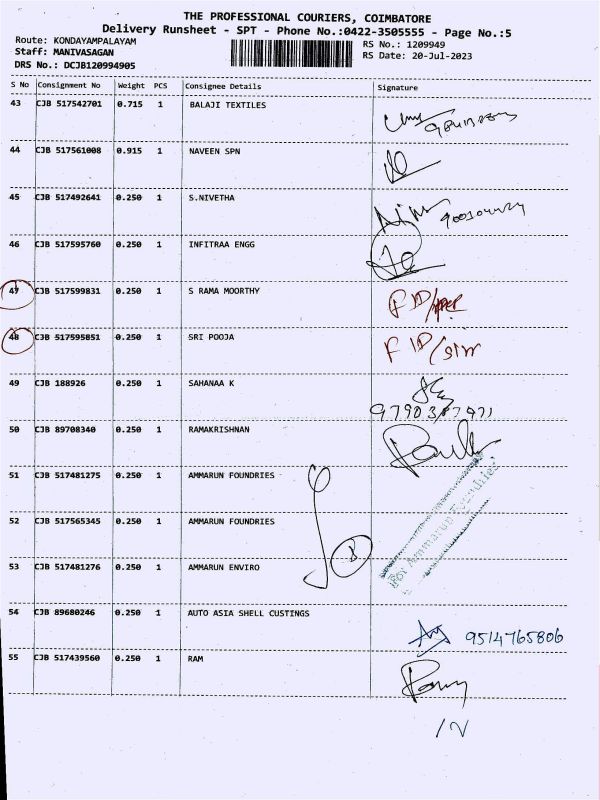 THE PROFESSIONAL COURIERS, COIMBATORE
Delivery Runsheet - SPT - Phone No.:0422-3505555 - Page No.:5
Route: KONDAYAMPALAYAM
Staff: MANIVASAGAN
DRS No.: DCJB120994905
RS No.: 1209949
RS Date: 20-Jul-2023
S No Consignment No Weight PCS Consignee Details Signature
43 CJB 517542701 0.715 1 BALAJI TEXTILES
44 CJB 517561008 0.915 1 NAVEEN SPN
45 CJB 517492641 0.250 1 S.NIVETHA
46 CJB 517595760 0.250 1 INFITRAA ENGG
47 CJB 517599831 0.250 1 S RAMA MOORTHY
48 CJB 517595851 0.250 1 SRI POOJA
49 CJB 188926 0.250 1 SAHANAA K
50 CJB 89708340 0.250 1 RAMAKRISHNAN
51 CJB 517481275 0.250 1 AMMARUN FOUNDRIES
52 CJB 517565345 0.250 1 AMMARUN FOUNDRIES
For Ammarun Foundries
53 CJB 517481276 0.250 1 AMMARUN ENVIRO
54 CJB 89680246 0.250 1 AUTO ASIA SHELL CUSTINGS 9514765806
55 CJB 517439560 0.250 1 RAM